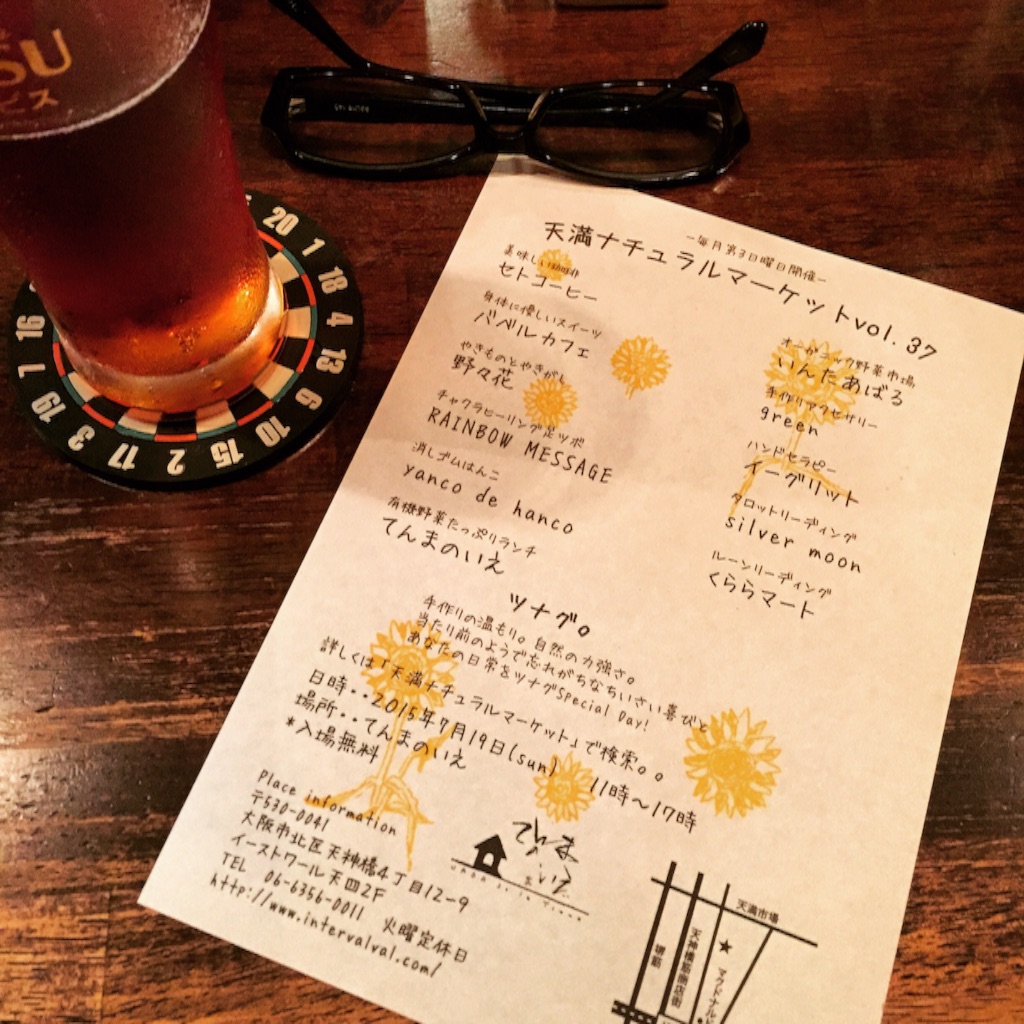 SU
ビス
20 1 18 4 13 10 15 2 17 19 7 16
ー毎月第3日曜日開催ー
天満ナチュラルマーケットvol.37
美味しい珈琲
セトコーヒー
身体に優しいスイーツ
バベルカフェ
やきものとやきがし
野々花
チャクラヒーリング足ツボ
RAINBOW MESSAGE
消しゴムはんこ
yanco de hanco
有機野菜たっぷりランチ
てんまのいえ
オーガニック野菜市場
いんたあばる
手作りアクセサリー
green
ハンドセラピー
イーグリット
タロットリーディング
silver moon
ルーンリーディング
くららマート
ツナグ。
手作りの温もり。自然の力強さ。
当たり前のようで忘れがちなちいさい喜びと
あなたの日常をツナグSpecial Day!
詳しくは「天満ナチュラルマーケット」で検索。。
日時・・2015年7月19日(sun) 11時〜17時
場所・・てんまのいえ
*入場無料
Place information
〒530-0041
大阪市北区天神橋4丁目12-9
イーストワール天四2F
TEL 06-6356-0011 火曜定休日
http://www.intervalval.com/
てんま
のいえ
天満市場
堺筋
天神橋筋商店街
マクドナル